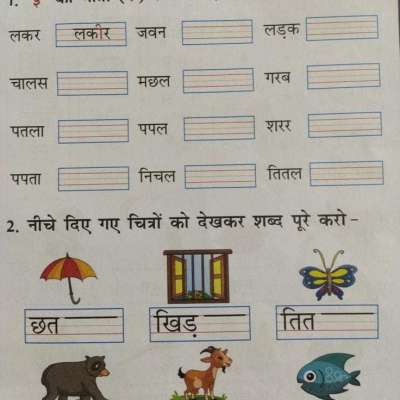 लकर लकीर जवन लड़क
चालस मछल गरब
पतला पपल शरर
पपता निचल तितल
2. नीचे दिए गए चित्रों को देखकर शब्द पूरे करो -
छत खिड़ तित